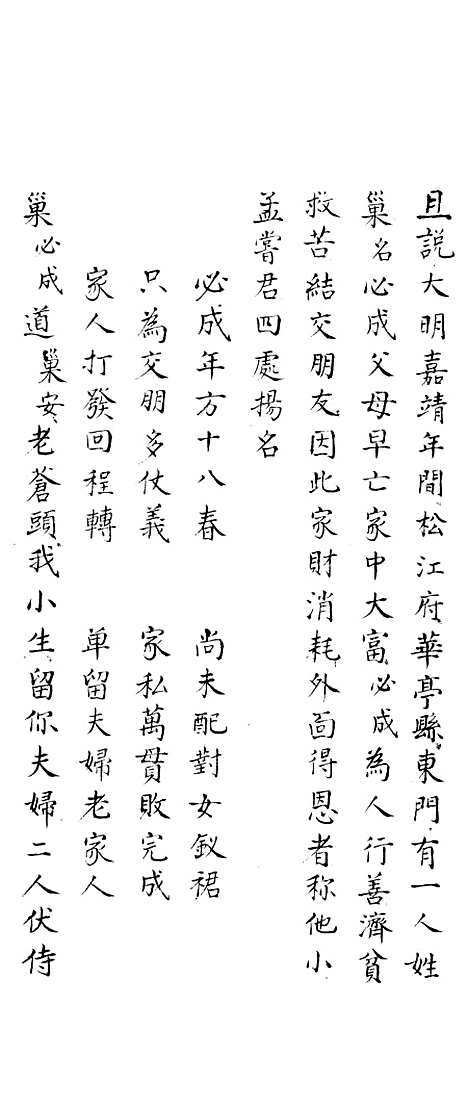 且説大明嘉靖年間松江府華亭縣東門有一人姓
巢名必成父母早亡家中大富必成為人行善濟貧
救苦結交朋友因此家財消耗外面得恩者称他小
孟嘗君四處揚名
必成年方十八春　尚未配對女釵裙
只為交朋多仗義　家私萬貫敗完成
家人打發回程轉　单留夫婦老家人
巢必成道巢安老蒼頭我小生留你夫婦二人伏侍